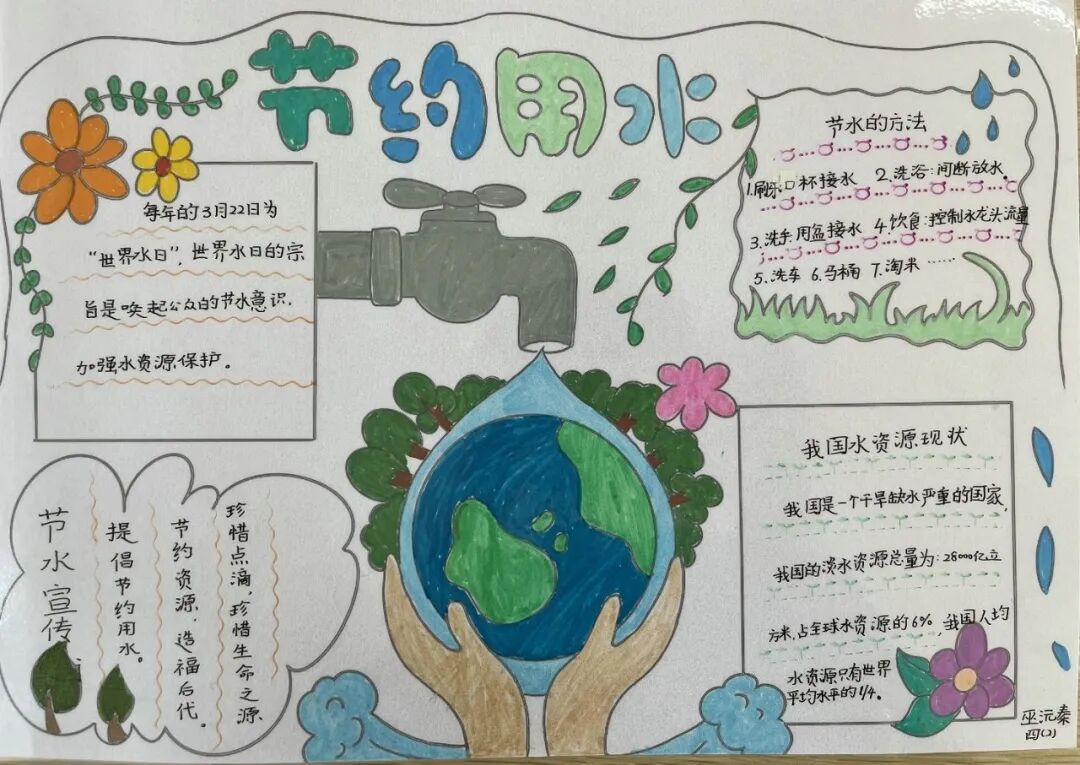 节约用水
每年的3月22日为
“世界水日”，世界水日的宗
旨是唤起公众的节水意识，
加强水资源保护。
节水的方法
1.刷牙:口杯接水 2.洗浴:间断放水。
3.洗手:用盆接水 4.饮食:控制水龙头流量
5.洗车 6.马桶 7.淘米 ……
节水宣传:
提倡节约用水。
节约资源，造福后代。
珍惜点滴，珍惜生命之源
我国水资源现状
我国是一个干旱缺水严重的国家，
我国的淡水资源总量为:28000亿立
方米，占全球水资源的6%，我国人均
水资源只有世界
平均水平的1/4。
巫沅秦
四(2)